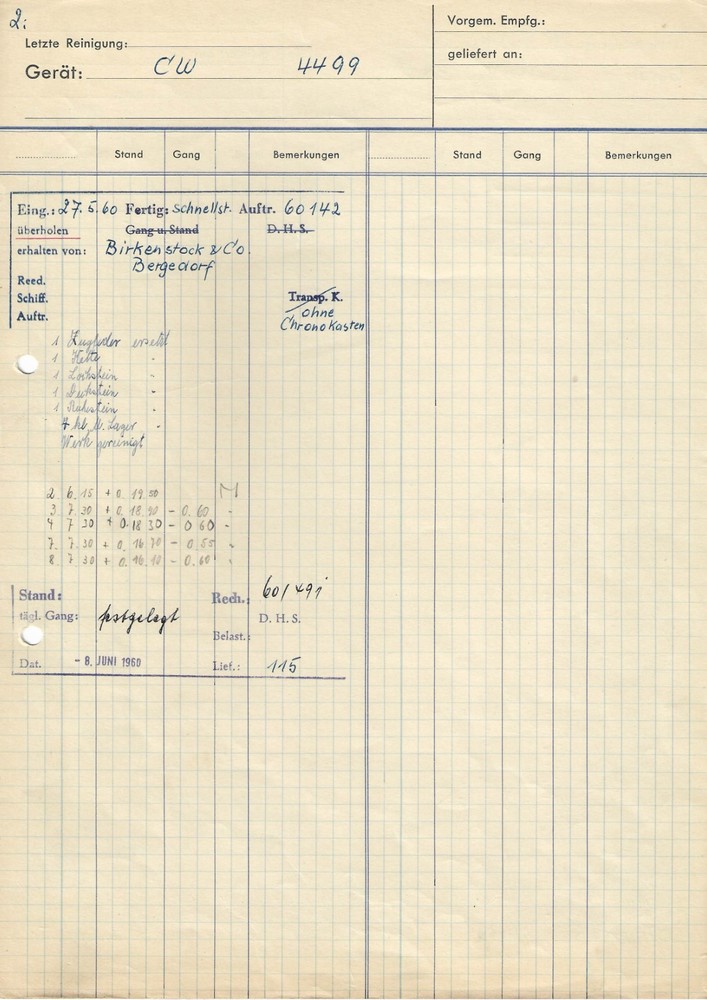 2:
Letzte Reinigung:
Gerät: CW 4499
Vorgem. Empfg.:
geliefert an:
Stand Gang Bemerkungen Stand Gang Bemerkungen
Eing.: 27.5.60 Fertig: Schnellst. Auftr. 60142
überholen Gang u. Stand D.H.S.
erhalten von: Birkenstock & Co.
Bergedorf
Reed.
Schiff. Transp. K.
Auftr. ohne
Chronokasten
1 Zugfeder ersetzt
1 Kette "
1 Lochstein "
1 Deckstein "
1 "
4 Lager "
Werk gereinigt
2. 6.15 + 0. 19.50
3. 7 30 + 0. 18.90 - 0.60 "
4 7 30 + 0.18 30 - 0 60 "
7. 7.30 + 0. 16 70 - 0.55 "
8. 7 30 + 0. 16.10 - 0.60 "
Stand: Rech.: 60/491
tägl. Gang: festgelegt D. H. S.
Belast.:
Dat. - 8. JUNI 1960 Lief.: 115